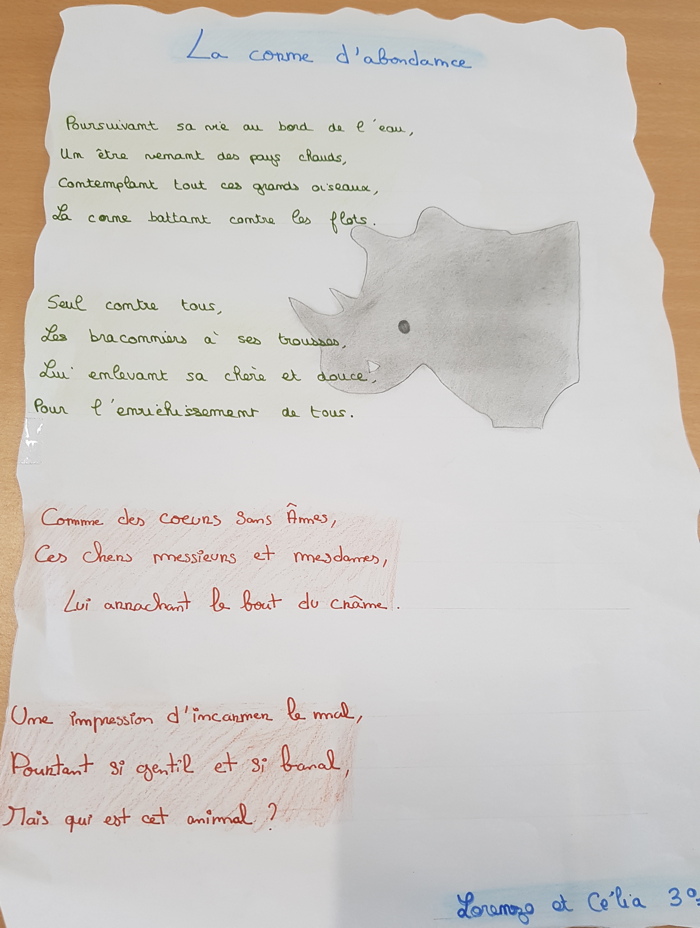 La corne d'abondance
Poursuivant sa vie au bord de l'eau,
Un être venant des pays chauds,
Contemplant tout ces grands oiseaux,
La corne battant contre les flots.
Seul contre tous,
Les braconniers à ses trousses,
Lui enlevant sa chère et douce,
Pour l'enrichissement de tous.
Comme des coeurs sans Âmes,
Ces chers messieurs et mesdames,
Lui arrachant le bout du crâne.
Une impression d'incarner le mal,
Pourtant si gentil et si banal,
Mais qui est cet animal ?
Lorenzo et Célia 3°